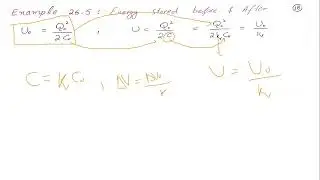 Example 26.5: Energy stored before & After
U₀ = Q₀²/2C₀ , U = Q₀²/2C = Q₀²/2kC₀ = U₀/k
C = kC₀ , ΔV = ΔV₀/k U = U₀/k